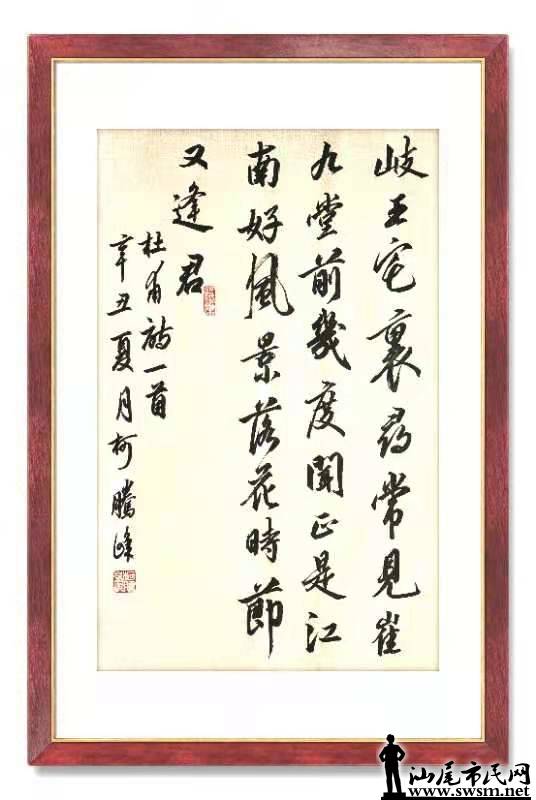 岐王宅裏尋常見崔
九堂前幾度聞正是江
南好風景落花時節
又逢君
杜甫詩一首
辛丑夏月柯騰峰
汕尾市民网
www.swsm.net